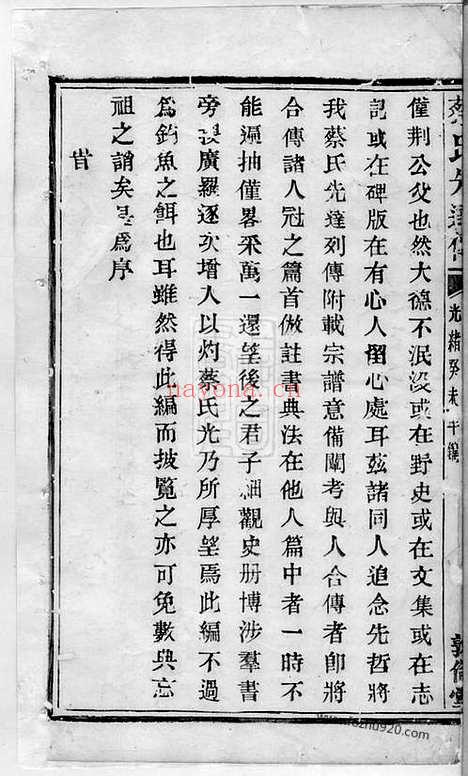 蔡氏先達傳 光緒癸未年鐫 敦倫堂
僅荆公父也然大德不泯没或在野史或在文集或在志
記或在碑版在有心人留心處耳兹諸同人追念先哲將
我蔡氏先達列傳附載宗譜意備闡考與人合傳者卽將
合傳諸人冠之篇首倣註書典法在他人篇中者一時不
能遍抽僅畧采萬一還望後之君子細觀史册博涉羣書
旁 廣羅逐次增入以灼蔡氏光乃所厚望焉此編不過
爲釣魚之餌也耳雖然得此編而披覽之亦可免數典忘
祖之誚矣是爲序
旹
nayona.cn
fozhu920.com